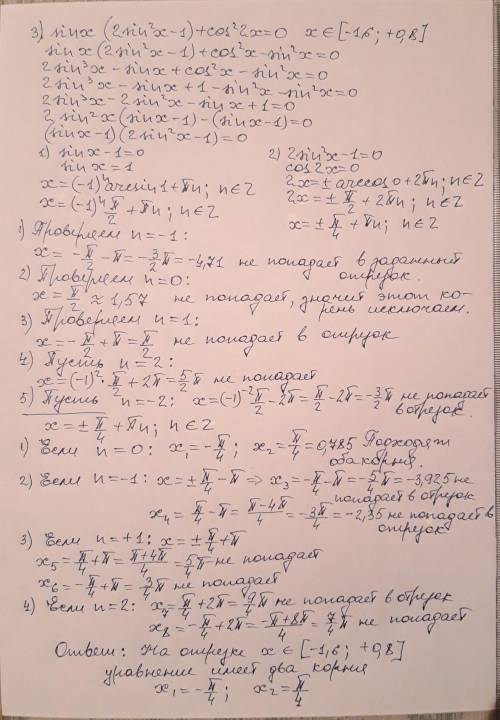 3) sinx (2sin²x-1)+cos²2x=0 x∈[-1,6; +0,8]
sinx(2sin²x-1)+cos²x-sin²x=0
2sin³x-sinx+cos²x-sin²x=0
2sin³x-sinx+1-sin²x-sin²x=0
2sin³x-2sin²x-sinx+1=0
2sin²x(sinx-1)-(sinx-1)=0
(sinx-1)(2sin²x-1)=0
1) sinx-1=0
sinx=1
x=(-1)ⁿarcsin1+πn; n∈Z
x=(-1)ⁿπ/2+πn; n∈Z
2) 2sin²x-1=0
cos2x=0
2x=±arccos0+2πn; n∈Z
2x=±π/2+2πn; n∈Z
x=±π/4+πn; n∈Z
1) Проверяем n=-1:
x=-π/2-π=-3/2π=-4,71 не попадает в заданный отрезок.
2) Проверяем n=0:
x=π/2≈1,57 не попадает, значит этот корень исключаем.
3) Проверяем n=1:
x=-π/2+π=π/2 не попадает в отрезок
4) Пусть n=2:
x=(-1)²·π/2+2π=5/2π не попадает
5) Пусть n=-2: x=(-1)⁻²π/2-2π=π/2-2π=-3/2π не попадает в отрезок.
x=±π/4+πn; n∈Z
1) Если n=0: x₁=-π/4; x₂=π/4=0,785 Подходят оба корня.
2) Если n=-1: x=±π/4-π ⇒ x₃=-π/4-π=-5/4π=-3,925 не попадает в отрезок
x₄=π/4-π=π-4π/4=-3π/4=-2,35 не попадает в отрезок
3) Если n=+1: x=±π/4+π
x₅=π/4+π=π+4π/4=5/4π не попадает
x₆=-π/4+π=3/4π не попадает
4) Если n=2: x₇=π/4+2π=9/4π не попадает в отрезок
x₈=-π/4+2π=-π+8π/4=7/4π не попадает
Ответ: На отрезке x∈[-1,6; +0,8]
уравнение имеет два корня
x₁=-π/4; x₂=π/4